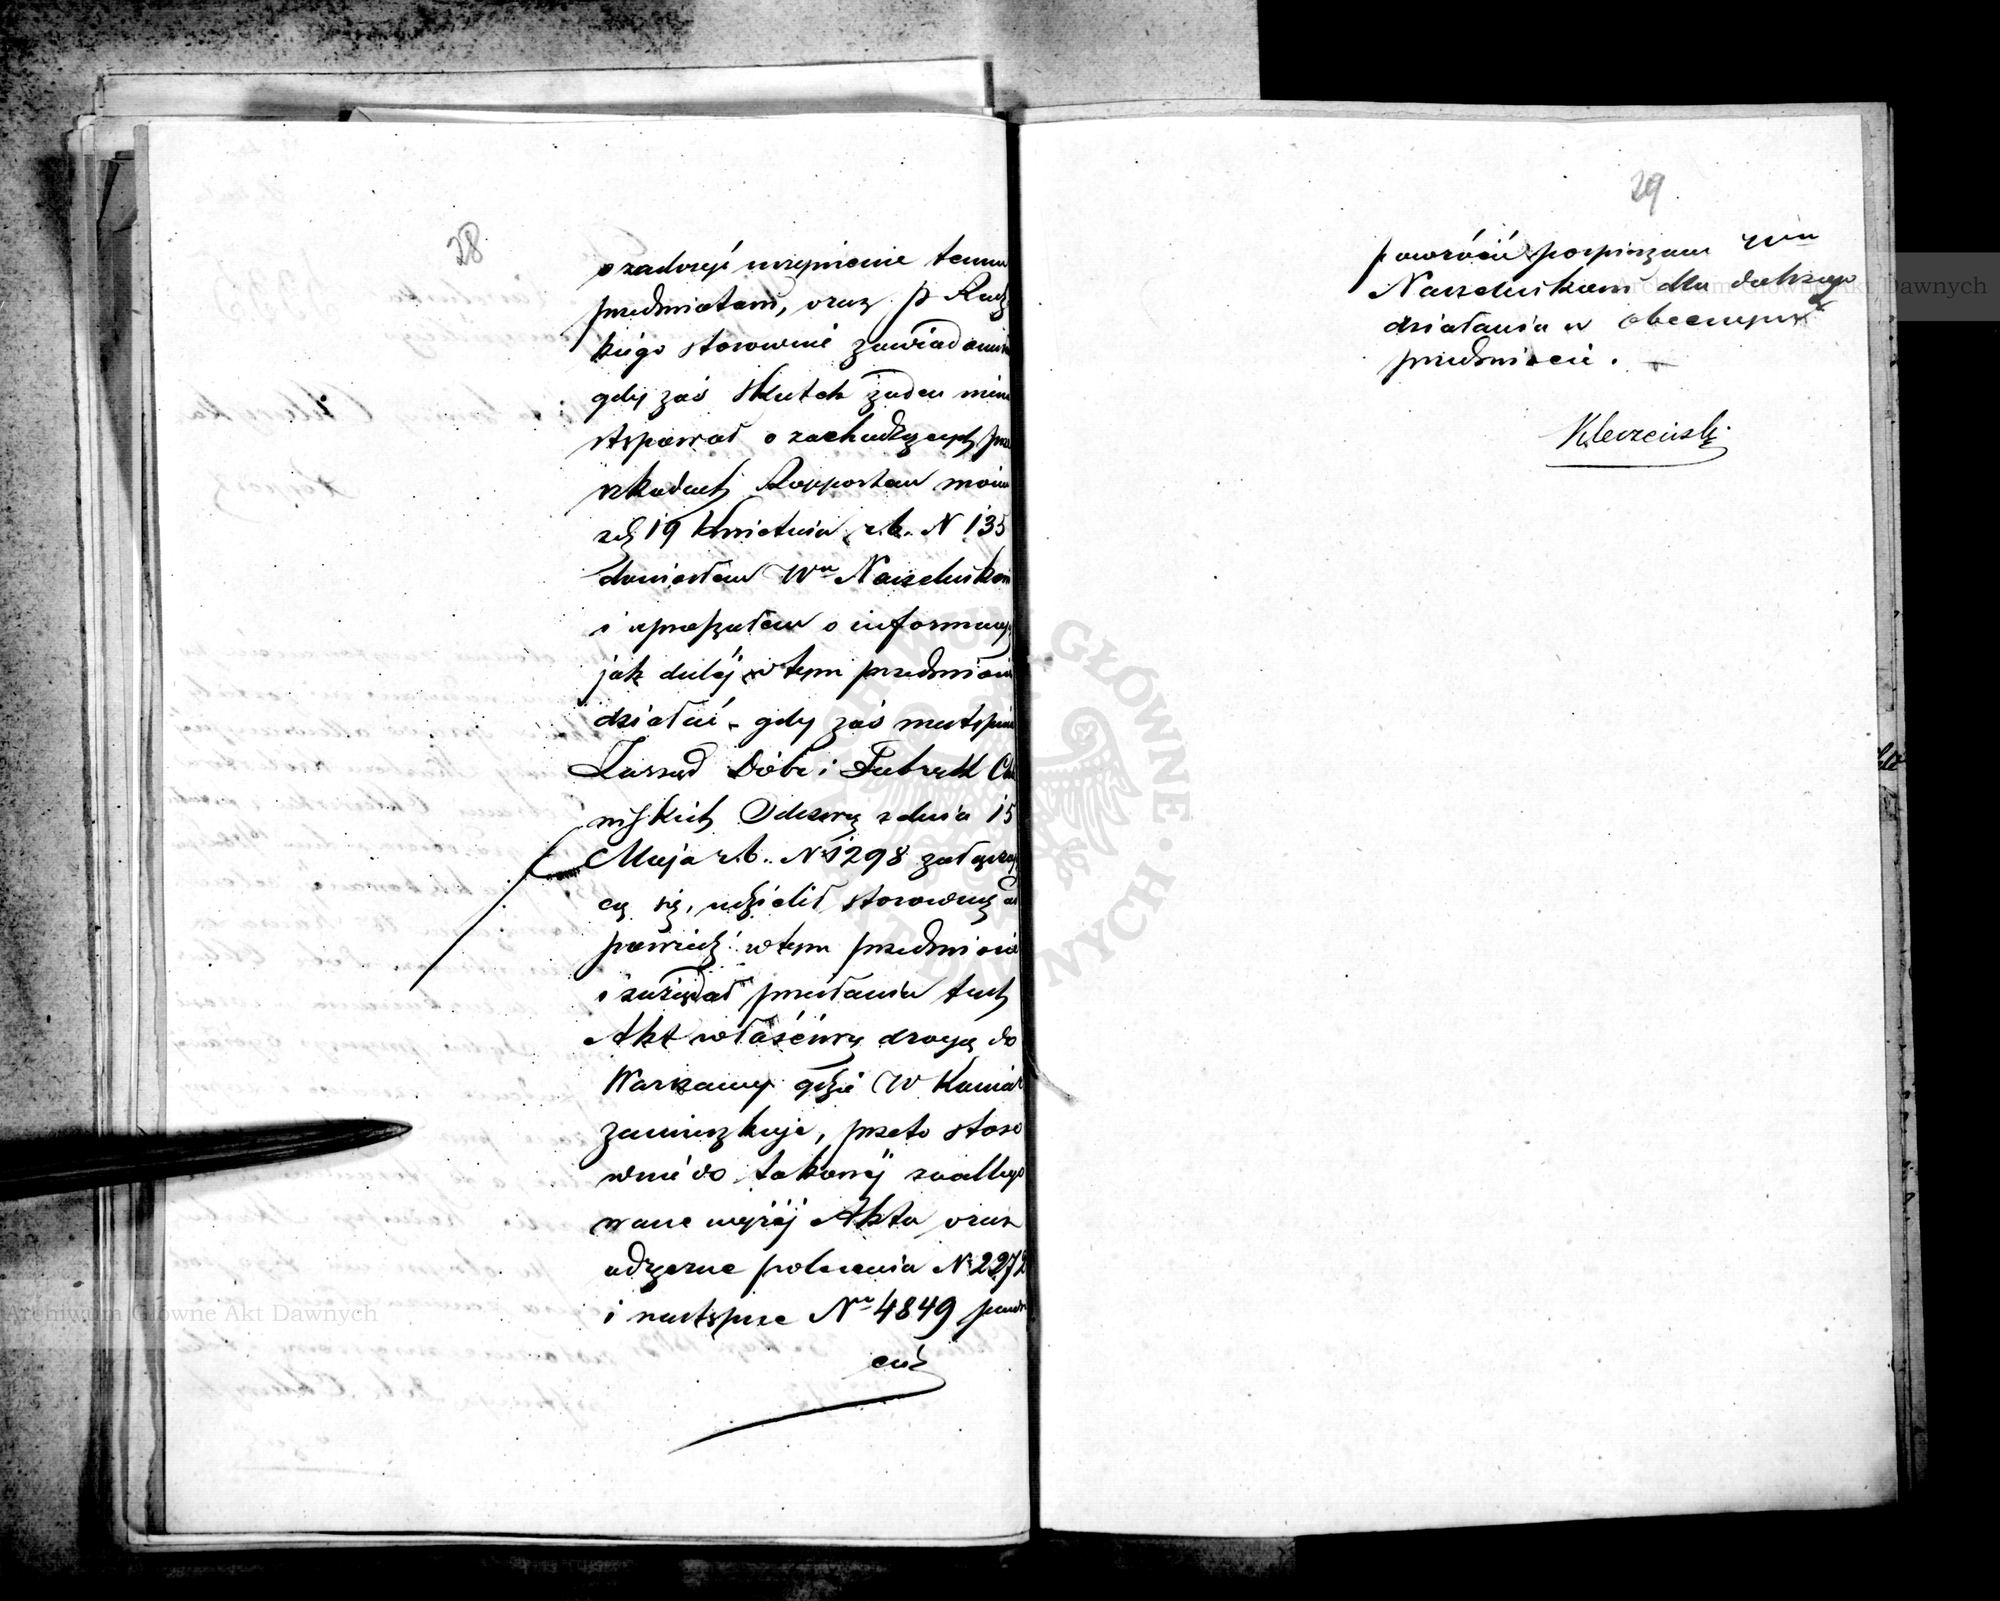 28
o zadosyć uczynienie temu
przedmiotowi, oraz P. Rudz
kiego stosownie zawiadomić
gdy zaś skutek żaden nie
o zachodzących prze
szkodach Rapportem moim
z d. 19 Kwietnia r.b. N 135
doniosłem Wu Naczelnikowi
i upraszałem o informacyę
jak daléj w tym przedmiocie
działać - gdy zaś następnie
Zarząd Dóbr i Fabryk
Odezwą z dnia 15
Maja r.b. N 1298 załącza
cą się, udzielił stosowną od
powiedź w tym przedmiocie
i zażądał przesłania tych
Akt właściwą drogą do
Warszawy gdzie W
zamieszkuje, przeto stoso
wnie do takowéj
wane wyżéj Akta oraz
polecenia N 2272
i następne No 4849 powró
cić
29
powrócić pospieszam Wmu
Naczelnikowi dla dalszego
działania w obecnym
przedmiocie.
Archiwum Główne Akt Dawnych
Archiwum Główne Akt Dawnych
ARCHIWUM GŁÓWNE AKT DAWNYCH